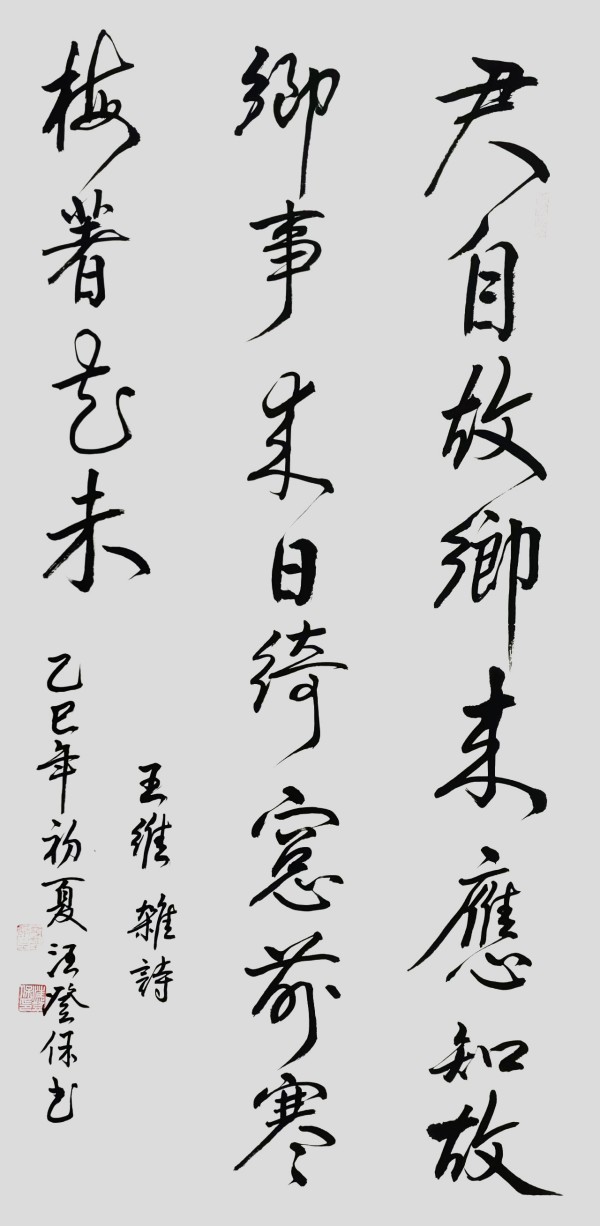 君自故鄉来應知故
鄉事来日綺窓前寒
梅著花未
王維雜詩
乙巳年初夏汪登保书